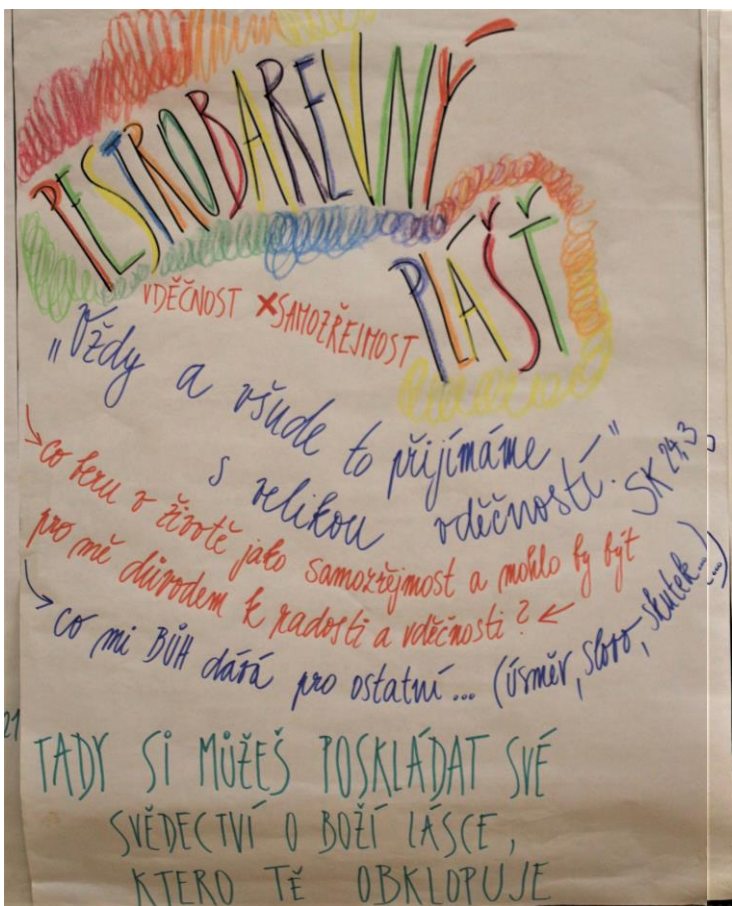 PESTROBAREVNÝ
PLÁŠŤ
VDĚČNOST × SAMOZŘEJMOST
„Vždy a všude to přijímáme
s velikou vděčností." SK 24,3
co beru v životě jako samozřejmost a mohlo by být
pro mě důvodem k radosti a vděčnosti?
co mi BŮH dává pro ostatní... (úsměv, slovo, skutek...)
21
TADY SI MŮŽEŠ POSKLÁDAT SVÉ
SVĚDECTVÍ O BOŽÍ LÁSCE,
KTERO TĚ OBKLOPUJE